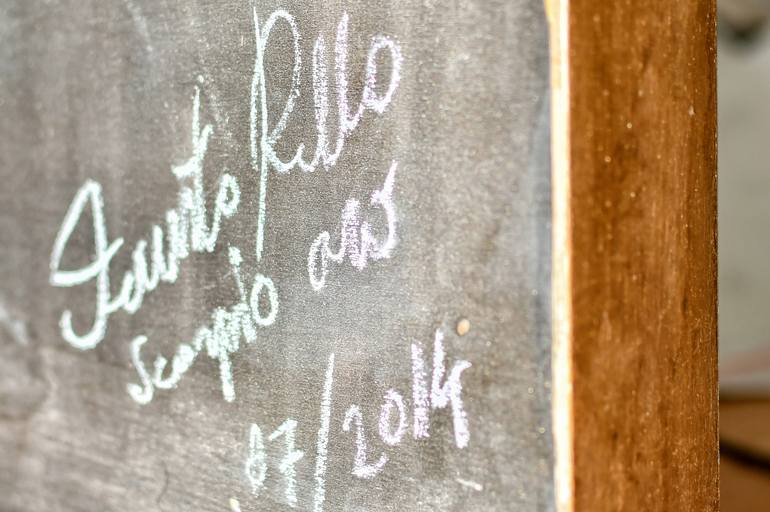 Fausto Rillo
Scorpio and
07/2014